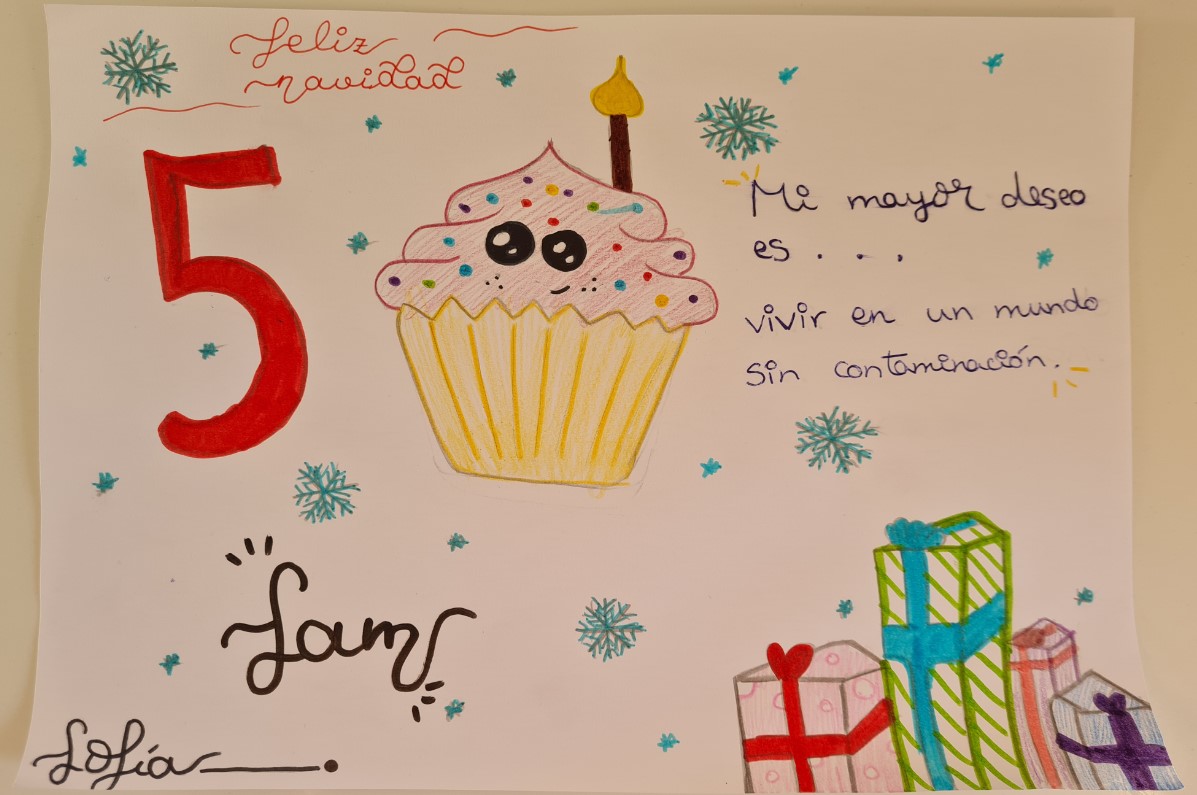 feliz
navidad
5
Mi mayor deseo
es . . .
vivir en un mundo
sin contaminación.
Sofía